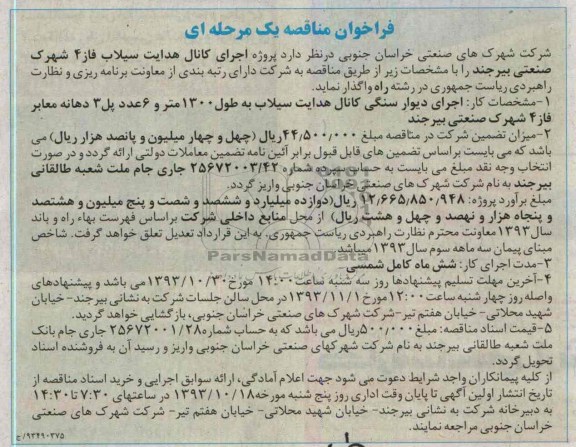 فراخوان مناقصه یک مرحله ای
شرکت شهرک های صنعتی خراسان جنوبی درنظر دارد پروژه اجرای کانال هدایت سیلاب فاز۴ شهرک
صنعتی بیرجند را با مشخصات زیر از طریق مناقصه به شرکت دارای رتبه بندی از معاونت برنامه ریزی و نظارت
راهبردی ریاست جمهوری در رشته راه واگذار نماید.
۱-مشخصات کار: اجرای دیوار سنگی کانال هدایت سیلاب به طول۱۳۰۰متر و ۶عدد پل۳ دهانه معابر
فاز۴ شهرک صنعتی بیرجند
۲-میزان تضمین شرکت در مناقصه مبلغ ۴۴,۵۰۰,۰۰۰ریال (چهل و چهار میلیون و پانصد هزار ریال) می
باشد که می بایست براساس تضمین های قابل قبول برابر آئین نامه تضمین معاملات دولتی ارائه گردد و در صورت
انتخاب وجه نقد مبلغ می بایست به حساب سپرده شماره ۲۵۶۷۲۰۰۳/۴۲ جاری جام ملت شعبه طالقانی
بیرجند به نام شرکت شهرک های صنعتی خراسان جنوبی واریز گردد.
مبلغ برآورد پروژه: ۱۲,۶۶۵,۸۵۰,۹۴۸ ریال(دوازده میلیارد و ششصد و شصت و پنج میلیون و هشتصد
و پنجاه هزار و نهصد و چهل و هشت ریال) از محل منابع داخلی شرکت براساس فهرست بهاء راه و باند
سال۱۳۹۳معاونت محترم نظارت راهبردی ریاست جمهوری. به این قرارداد تعدیل تعلق خواهد گرفت. شاخص
مبنای پیمان سه ماهه سوم سال۱۳۹۳میباشد
ParsNamadData
۳-مدت اجرای کار: شش ماه کامل شمسی
۴-آخرین مهلت تسلیم پیشنهادها روز سه شنبه ساعت۱۴:۰۰ مورخ۱۳۹۳/۱۰/۳۰می باشد و پیشنهادهای
واصله روز چهار شنبه ساعت۱۲:۰۰مورخ۱۳۹۳/۱۱/۱در محل سالن جلسات شرکت به نشانی بیرجند- خیابان
شهید محلاتی- خیابان هفتم تیر-شرکت شهرک های صنعتی خراسان جنوبی، بازگشایی خواهد گردید.
۵-قیمت اسناد مناقصه: مبلغ۵۰۰,۰۰۰ریال می باشد که به حساب شماره۲۵۶۷۲۰۰۱/۲۸ جاری جام بانک
ملت شعبه طالقانی بیرجند به نام شرکت شهرکهای صنعتی خراسان جنوبی واریز و رسید آن به فروشنده اسناد
تحویل گردد.
از کلیه پیمانکاران واجد شرایط دعوت می شود جهت اعلام آمادگی، ارائه سوابق اجرایی و خرید اسناد مناقصه از
تاریخ انتشار اولین آگهی تا پایان وقت اداری روز پنج شنبه مورخه۱۳۹۳/۱۰/۱۸ در ساعتهای ۷:۳۰ تا ۱۴:۳۰
به دبیرخانه شرکت به نشانی بیرجند- خیابان شهید محلاتی- خیابان هفتم تیر- شرکت شهرک های صنعتی
خراسان جنوبی مراجعه نمایند.
۹۳۴۹۰۳۷۵/ج